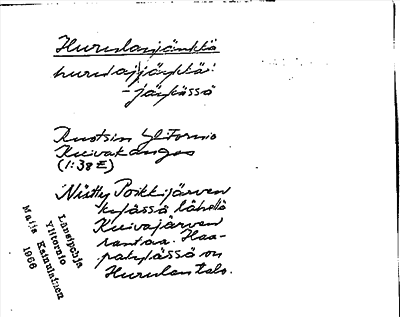 Hurulanjänkkä
hurulajjäŋkkä:
- jäŋkässä
Ruotsin Ylitornio
Kuivakangas
(1:38 E)
Niitty Poikkijärven
kylässä lähellä
Kuivajärven
rantaa. Haa-
pakylässä on
Hurulan talo.
Länsipohja
Ylitornio
Maija Kainulainen
1966